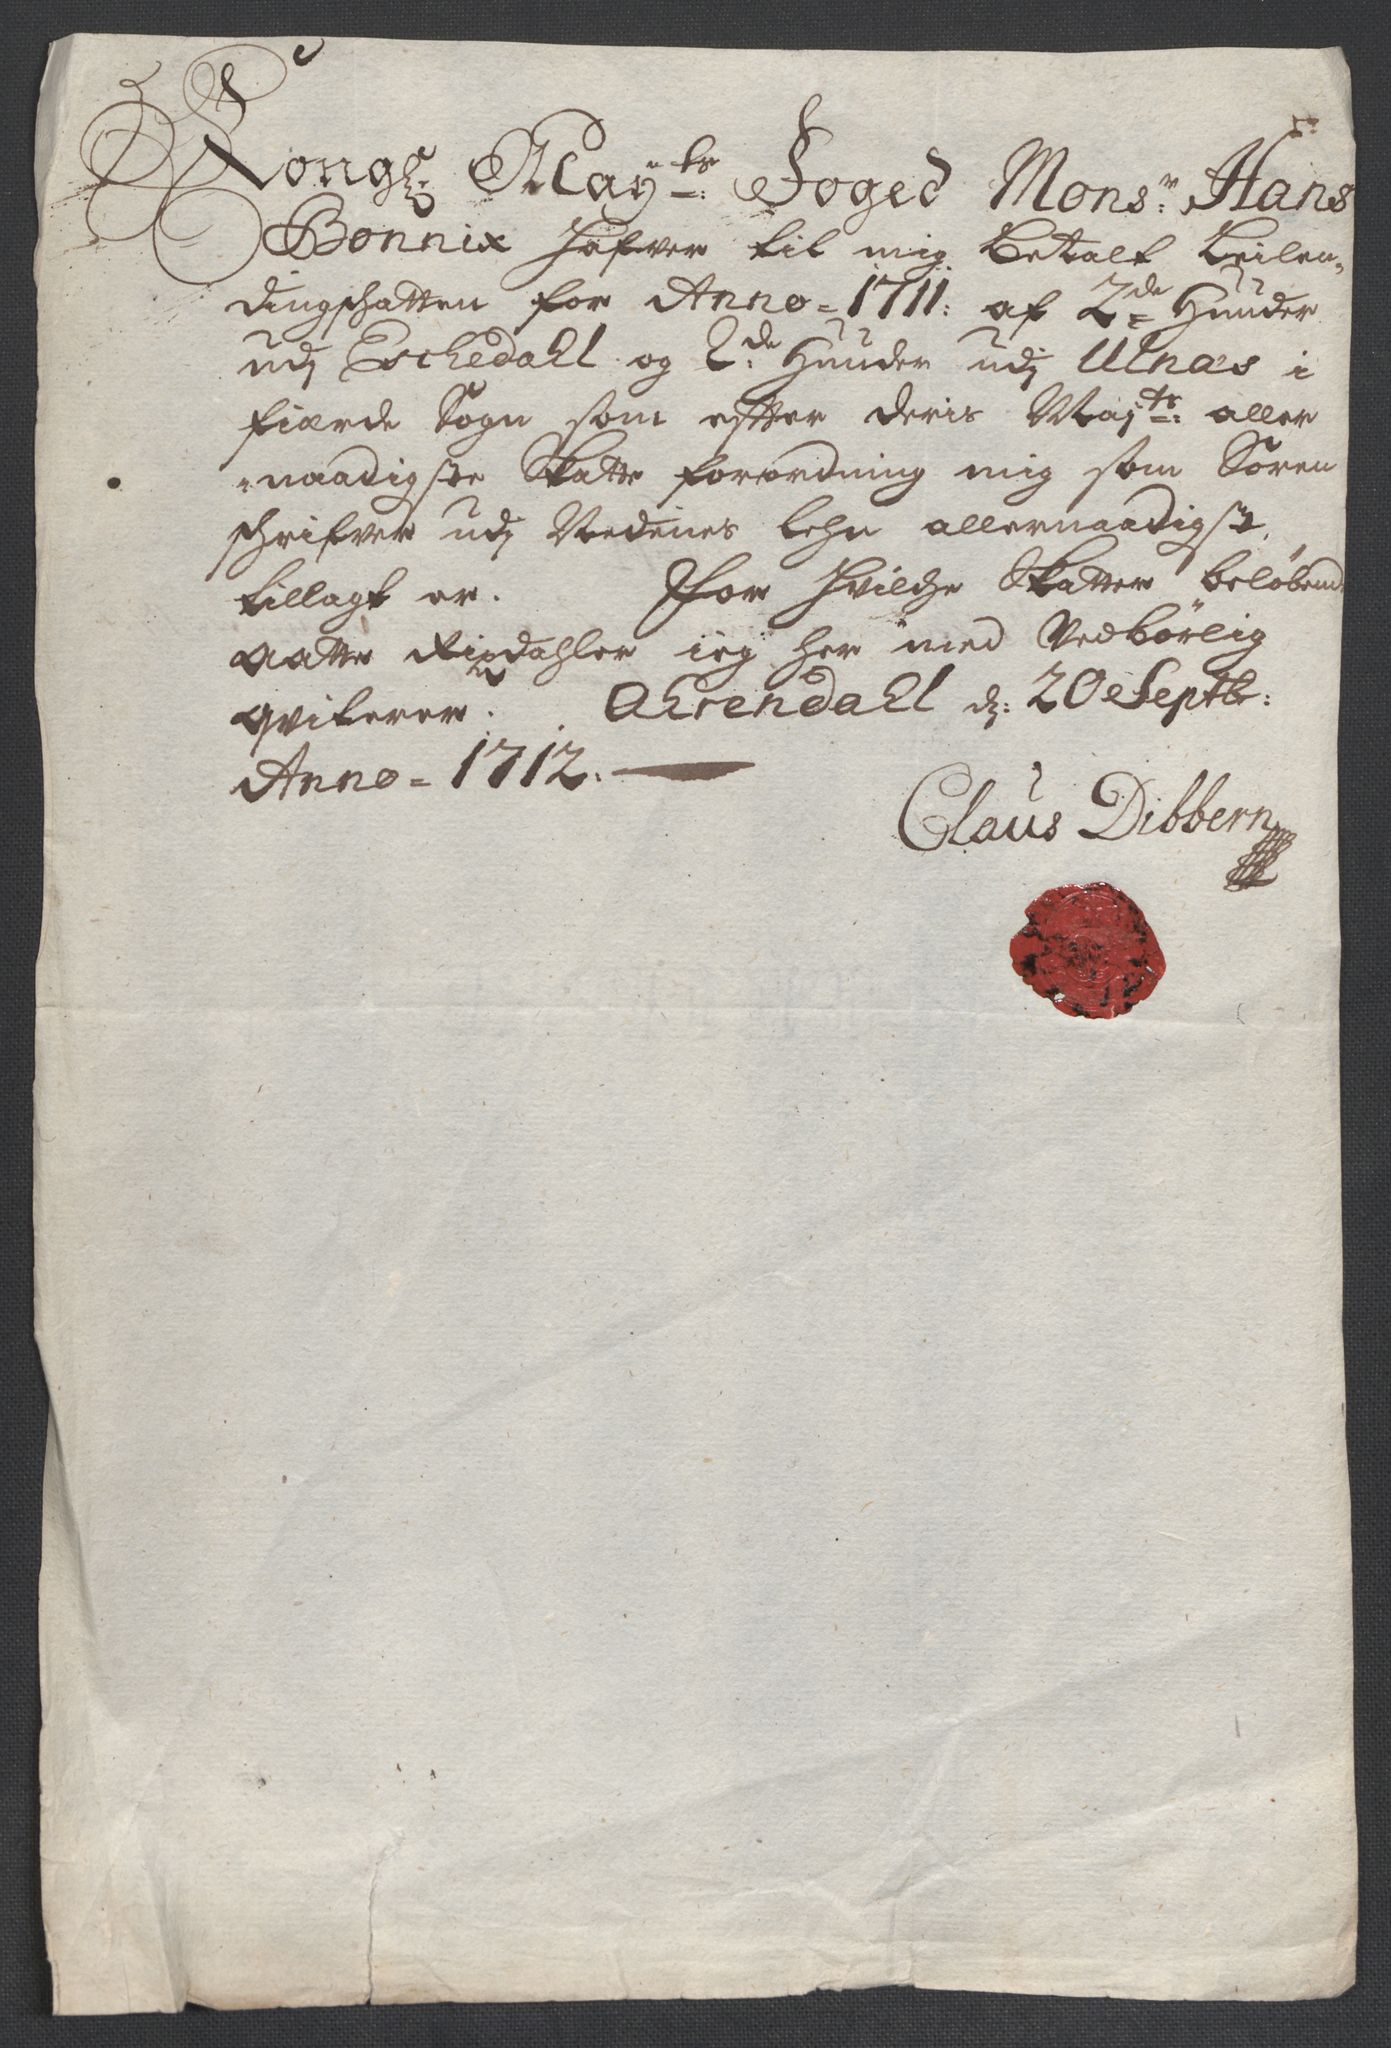 Kongl: Mayts: Foged Monsr: Hans
Bonnix hafver til mig betalt Leilen-
dingschatten for Anno = 1711: af 2de Huuder
udj Eschedahl og 2de Huuder udj Ulnæs i
fiærde Sogn som efter deris Mayts: aller
naadigste Skatte forordning mig som Soren
schrifver udj Nedenes lehn allernaadigst
tillagt er. For hvilche Skatter beløbend
aatte Rixdahler ieg her med Vedbørlig
qviterer. Ahrendahl d: 20 Septbr:
Anno = 1712.
Claus Dibbern